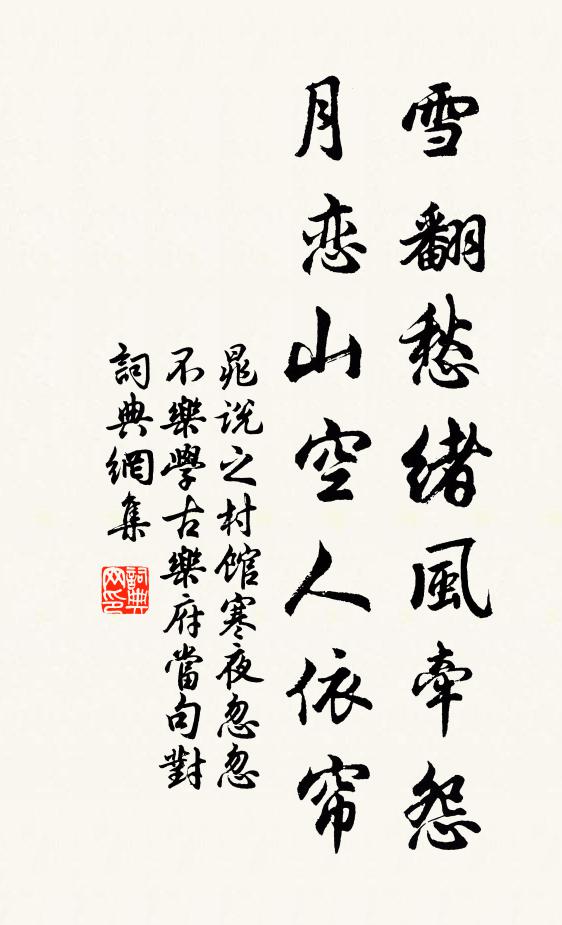 雪翻愁緒風牽怨
月恋山空人依帘
晁说之村館寒夜忽忽
不樂學古樂府當句對
詞典網集
詞典
网印